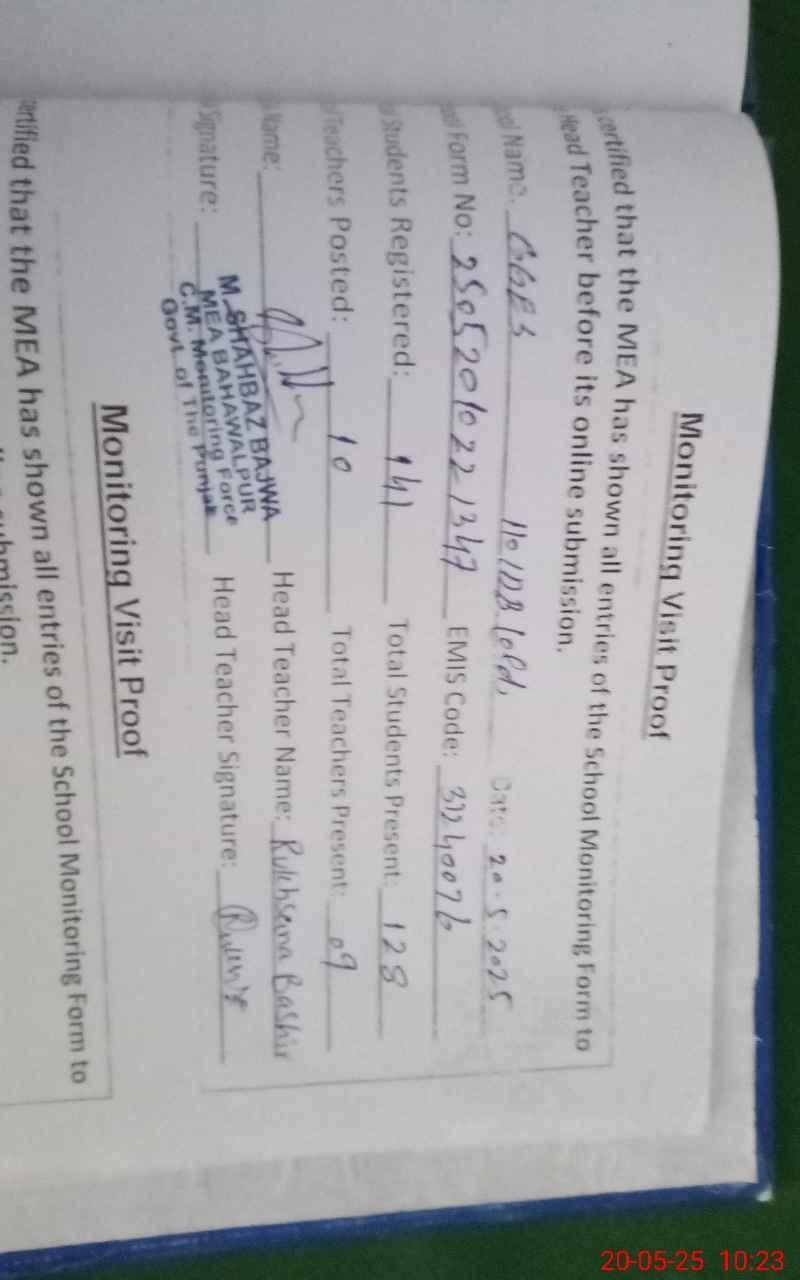 Monitoring Visit Proof
certified that the MEA has shown all entries of the School Monitoring Form to
Head Teacher before its online submission.
Name: GGPS 110/DB (old) Date: 20.5.2025
Form No: 25052010221347 EMIS Code: 31240076
Students Registered: 141 Total Students Present: 128
Teachers Posted: 10 Total Teachers Present: 09
Name: Head Teacher Name: Rukhsana Bashir
M. SHAHBAZ BAJWA
MEA BAHAWALPUR
C.M. Monitoring Force
Govt. of The Punjab
Signature: Head Teacher Signature:
Monitoring Visit Proof
certified that the MEA has shown all entries of the School Monitoring Form to
submission.
20-05-25 10:23